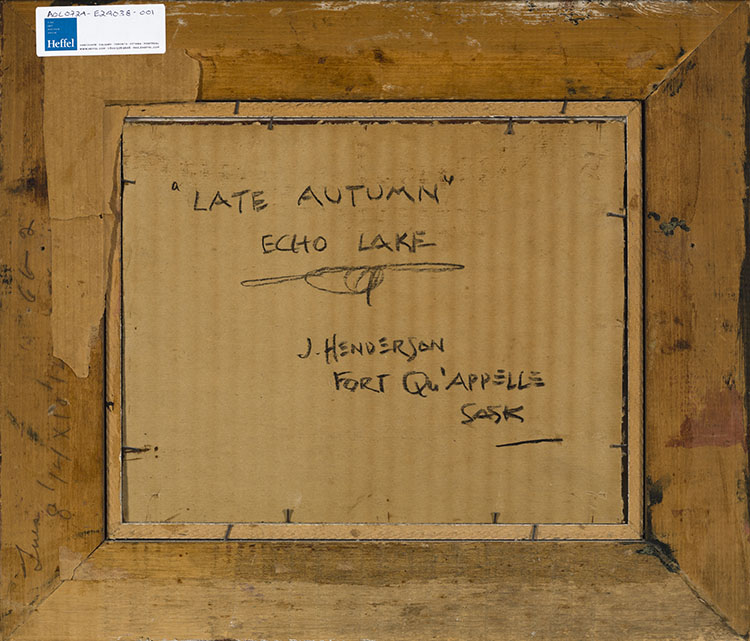 AOL072A-E29038-001
Heffel
"LATE AUTUMN"
ECHO LAKE
J. HENDERSON
FORT QU'APPELLE
SASK